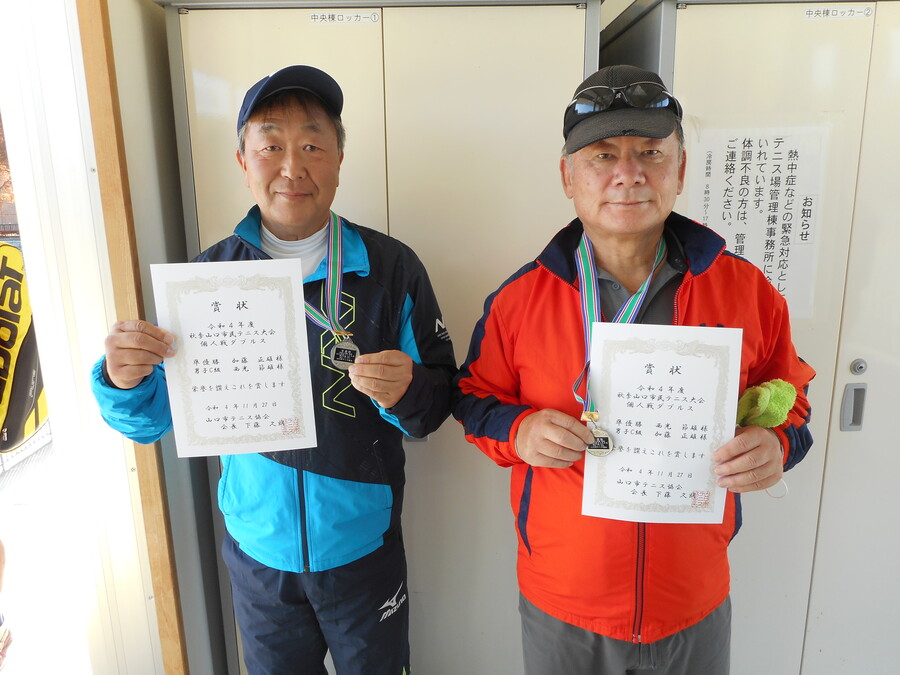 中央棟ロッカー①
中央棟ロッカー②
お知らせ
熱中症などの緊急対応とし
テニス場管理棟事務所に
いれています。
体調不良の方は、管理
ご連絡ください。
(冷房時間 8時30分~17
賞状
令和4年度
秋季山口市民テニス大会
個人戦ダブルス
準優勝 加藤 正雄様
男子C級
栄誉を讃えこれを賞します
令和4年11月27日
山口市テニス協会
会長 下藤
賞状
令和4年度
秋季山口市民テニス大会
個人戦ダブルス
準優勝
男子C級 加藤 正雄様
栄誉を讃えこれを賞します
令和4年11月27日
山口市テニス協会
会長 下藤
MIZUNO